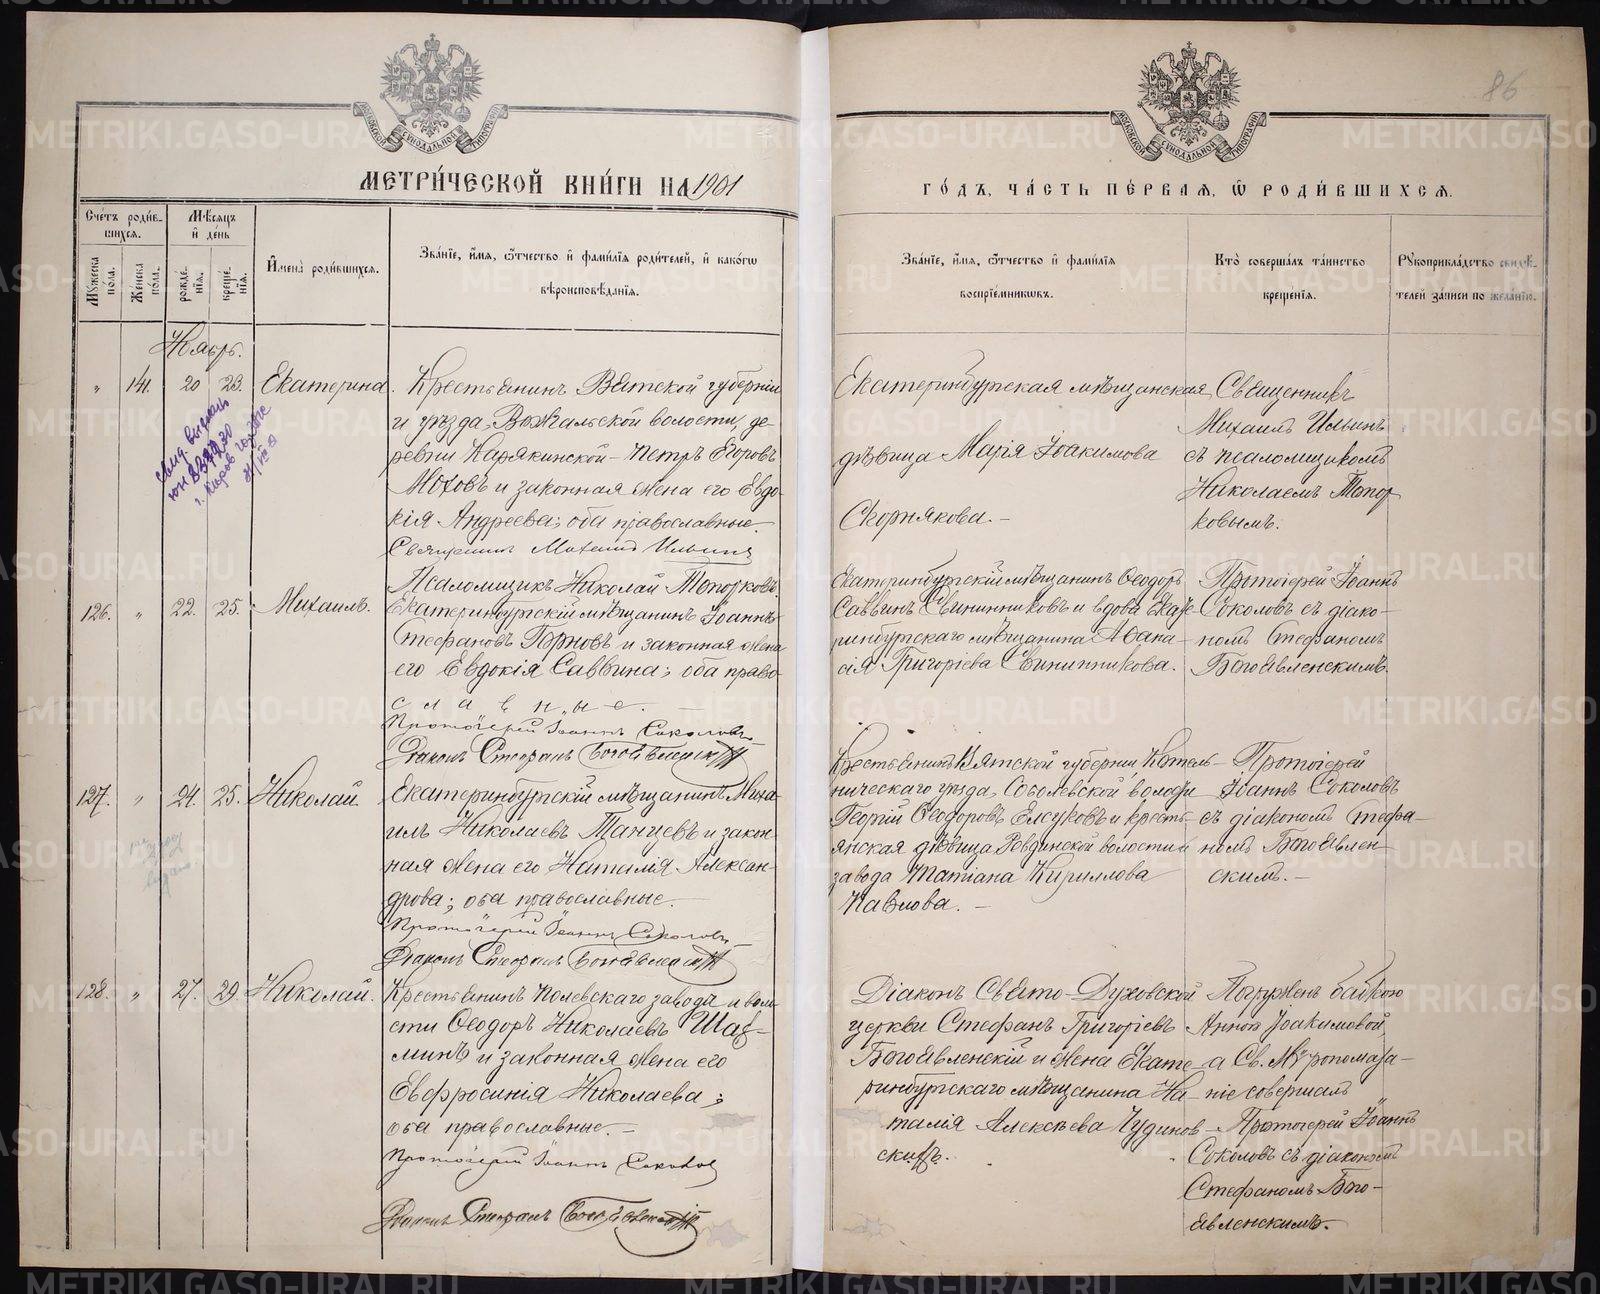 86
МОСКОВСКОЙ СѴНОДАЛЬНОЙ ТИПОГРАФИИ
МОСКОВСКОЙ СѴНОДАЛЬНОЙ ТИПОГРАФИИ
МЕТРИ́ЧЕСКОЙ КНИ́ГИ НА 1901
ГО́ДЪ, ЧА́СТЬ ПЕ́РВАЯ, Ѡ҆ РОДИ́ВШИХСЯ.
Сче́тъ роди́в-
шихся.
Мѣ́сяцъ
и҆ де́нь
Мꙋ́жеска по́ла.
Же́нска по́ла.
рожде́-
нїя.
креще́-
нїя.
И҆мена̀ роди́вшихся.
Зва́нїе, и҆́мя, ѻ҆́тчество и҆ фами́лїя роди́телей, и҆ како́гѡ
вѣроисповѣ́данїя.
Зва́нїе, и҆́мя, ѻ҆́тчество и҆ фами́лїя
воспрїе́мникѡвъ.
Кто̀ соверша́лъ та́инство
креще́нїя.
Рꙋкоприкла́дство свидѣ́-
телей за́писи по жела́нїю.
Ноябрь.
" 141. 20 23. Екатерина.
Крестьянинъ Вятской губерніи
и уѣзда, Вожгальской волости, де-
ревни Карякинской - Петръ Егоровъ
Моховъ и законная жена его Евдо-
кія Андреева; оба православные.
Священникъ Михаилъ Ильинъ
Псаломщикъ Николай Топорковъ.
Екатеринбургская мѣщанская
дѣвица Марія Іоакимова
Скорнякова. -
Священникъ
Михаилъ Ильинъ
съ псаломщикомъ
Николаемъ Топор
ковымъ.
126. " 22. 25. Михаилъ.
Екатеринбургскій мѣщанинъ Іоаннъ
Стефановъ Горновъ и законная жена
его Евдокія Саввина; оба право-
славные. -
Протоіерей Іоаннъ Соколовъ
Діаконъ Стефанъ Богоявленскій
Екатеринбургскій мѣщанинъ Ѳеодоръ
Саввинъ Свинишниковъ и вдова Екате-
ринбургскаго мѣщанина Аѳана-
сія Григоріева Свинишникова.
Протоіерей Іоаннъ
Соколовъ съ діако-
номъ Стефаномъ
Богоявленскимъ.
127. " 24. 25. Николай.
Екатеринбургскій мѣщанинъ Миха-
илъ Николаевъ Танцевъ и закон
ная жена его Наталія Алексан-
дрова; оба православные. -
Протоіерей Іоаннъ Соколовъ
Діаконъ Стефанъ Богоявленскій
Крестьянинъ Вятской губерніи Котель-
ническаго уѣзда, Соболевской волости
Георгій Ѳеодоровъ Елсуковъ и кресть-
янская дѣвица Ревдинской волости и
завода Татіана Кириллова
Павлова. -
Протоіерей
Іоаннъ Соколовъ
съ діакономъ Стефа-
номъ Богоявлен
скимъ. -
128. " 27. 29. Николай.
Крестьянинъ Полевскаго завода и воло
сти Ѳеодоръ Николаевъ
и законная жена его
Евфросинія Николаева;
оба православные. -
Протоіерей Іоаннъ Соколовъ
Діаконъ Стефанъ Богоявленскій
Діаконъ Свято-Духовской
церкви Стефанъ Григоріевъ
Богоявленскій и жена Екате-
ринбургскаго мѣщанина На-
талія Алексѣева Чудинов-
скихъ.
Погруженъ бабкою
Анною Іоакимовой
а Св. Мѵропомаза-
ніе совершалъ
Протоіерей Іоаннъ
Соколовъ съ діакономъ
Стефаномъ Бого-
явленскимъ. -
METRIKI.GASO-URAL.RU